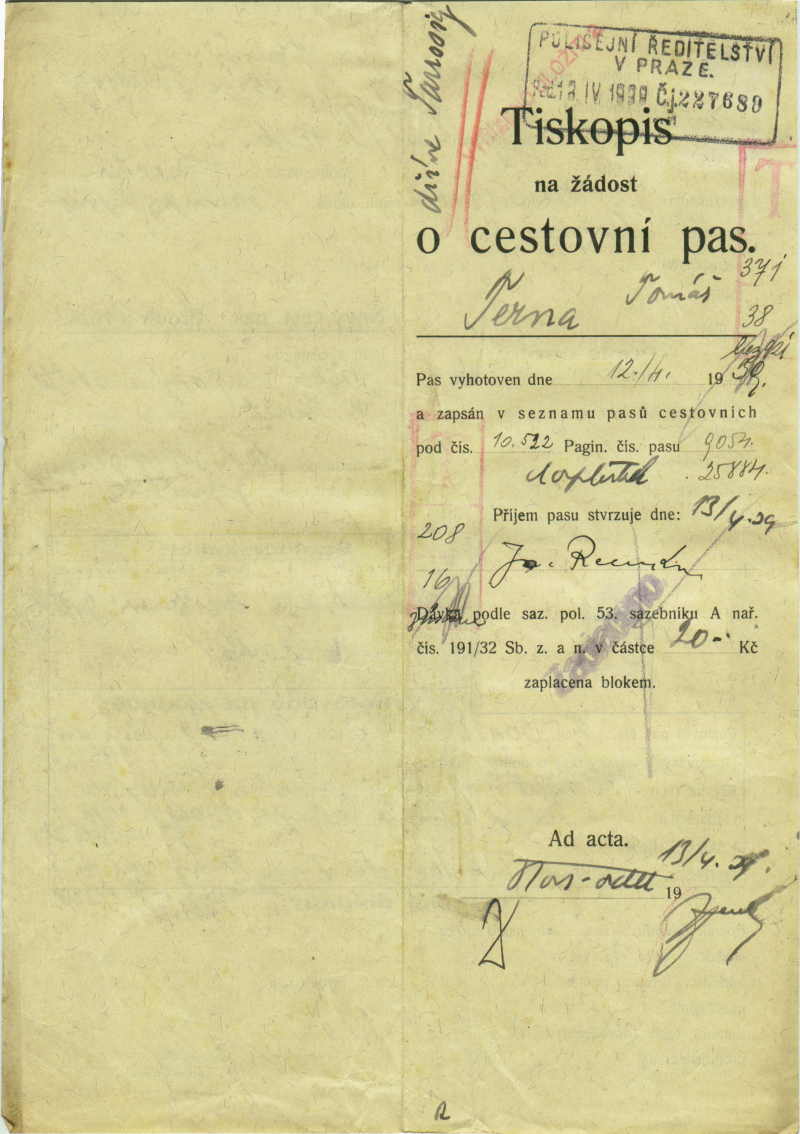 dříve
POLISEJNÍ ŘEDITELSTVÍ
V PRAZE.
IV 1939 Čj. 227689
Tiskopis
na žádost
o cestovní pas.
371
Terna Tomáš
38
Pas vyhotoven dne 12./4. 19 39.
a zapsán v seznamu pasů cestovních
pod čis. 10.522 Pagin. čis. pasu 9054.
25884.
Příjem pasu stvrzuje dne: 13/4. 39
208
16
Dávka podle saz. pol. 53. sazebníku A nař.
čis. 191/32 Sb. z. a n. v částce 20.- Kč
zaplacena blokem.
Ad acta.
13/4. 39.
19